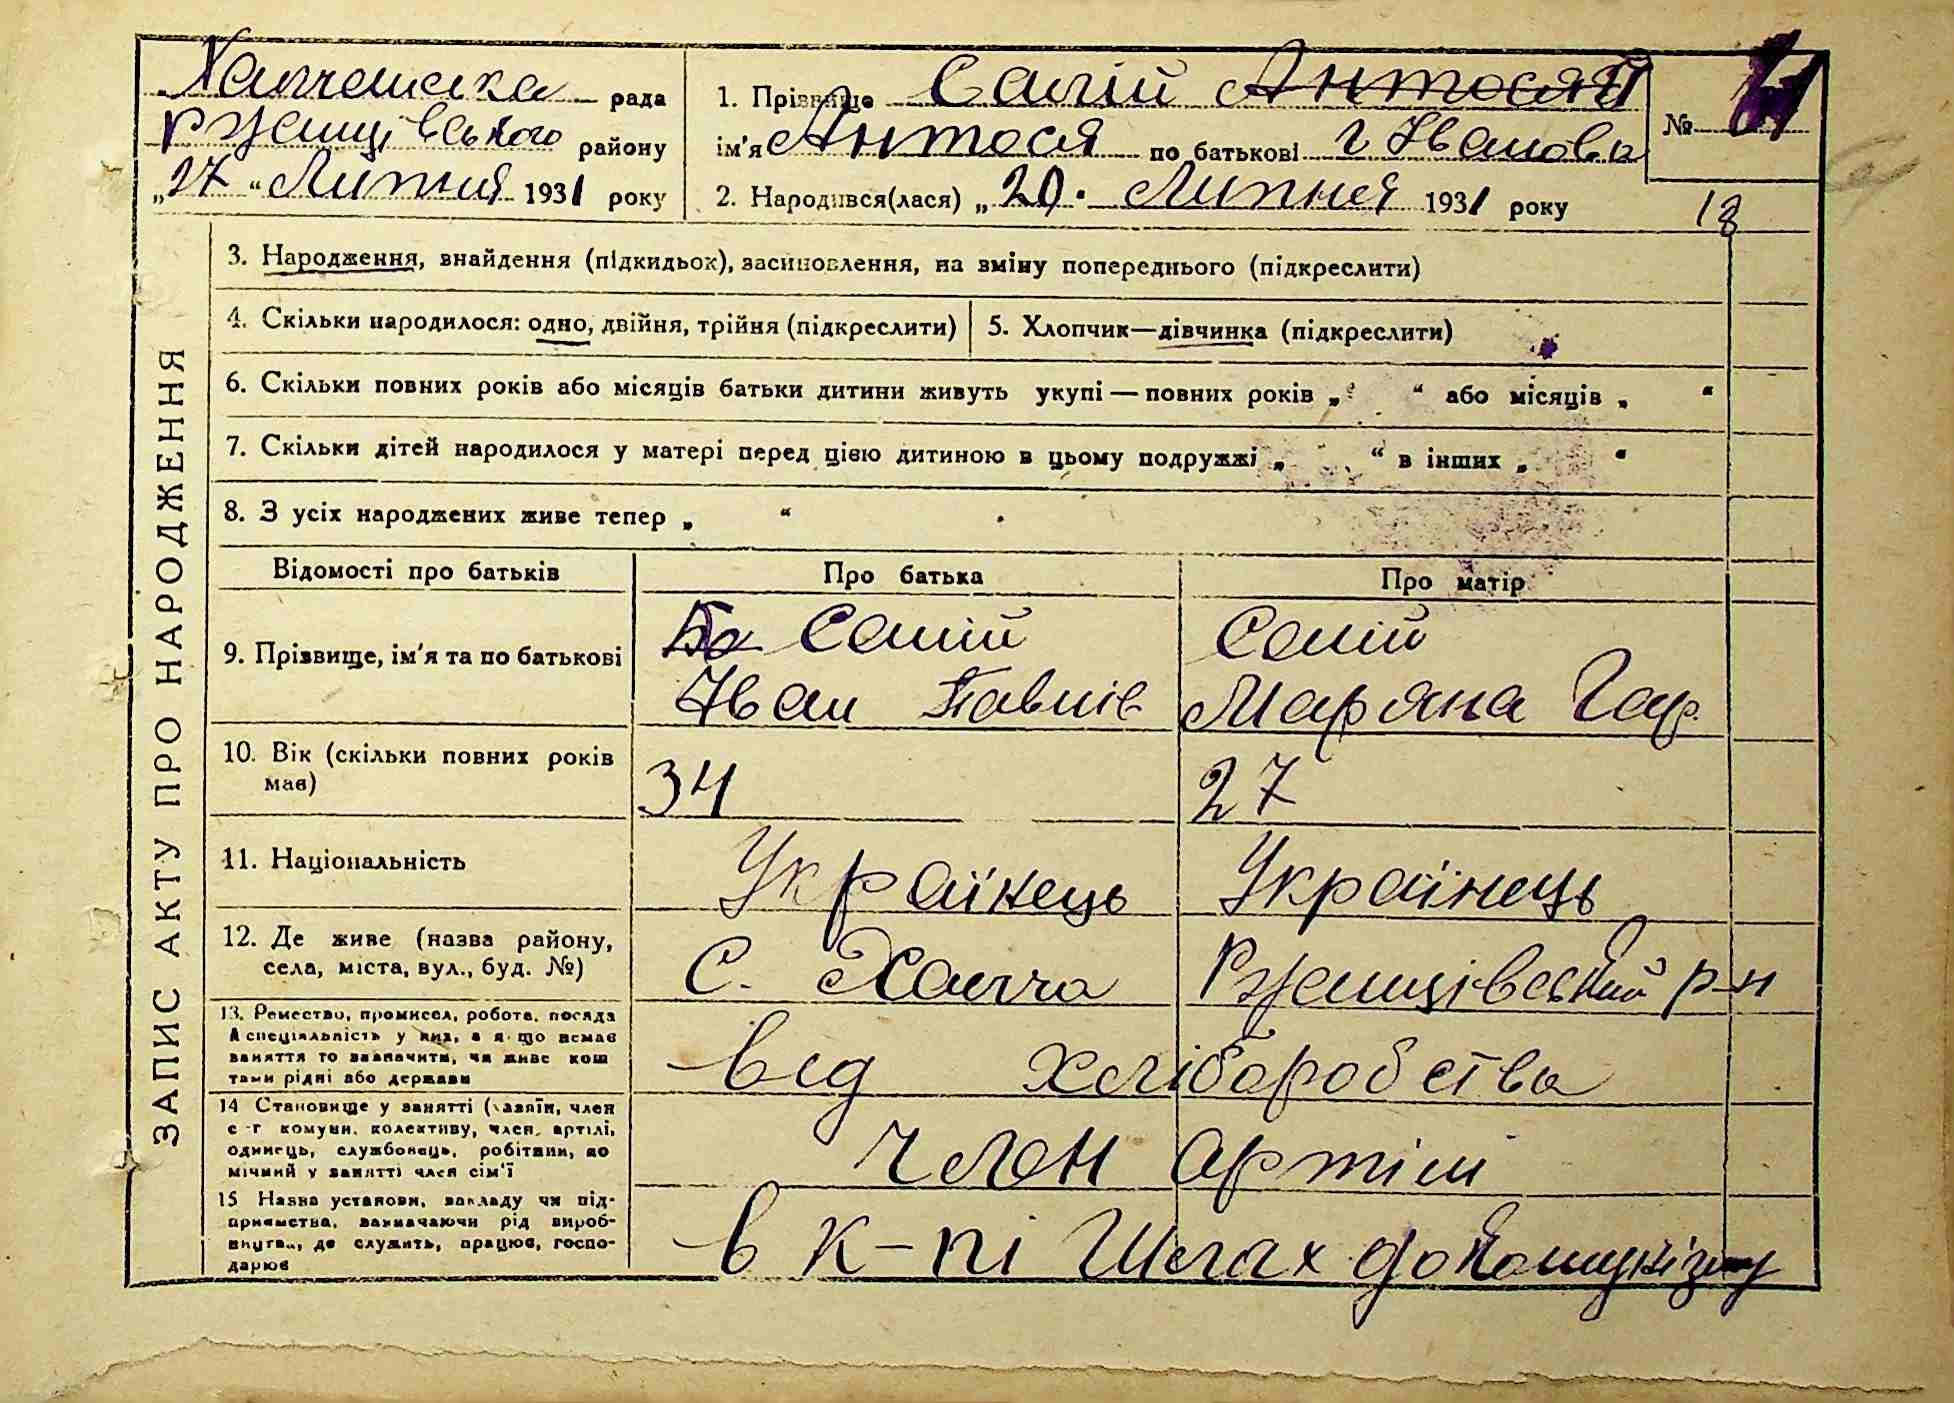 Халчанська рада
Ржищівського району
„27“ Липня 1931 року
1. Прізвище Салій Антосяй
ім'я Антося по батькові г Іванова
№
2. Народився(лася) „20. Липня 1931 року
18
ЗАПИС АКТУ ПРО НАРОДЖЕННЯ
3. Народження, внайдення (підкидьок), засиновлення, на зміну попереднього (підкреслити)
4. Скільки народилося: одно, двійня, трійня (підкреслити)
5. Хлопчик—дівчинка (підкреслити)
6. Скільки повних років або місяців батьки дитини живуть укупі — повних років „ “ або місяців „ “
7. Скільки дітей народилося у матері перед цією дитиною в цьому подружжі „ “ в інших „ “
8. З усіх народжених живе тепер „ “
Відомості про батьків
Про батька
Про матір
9. Прізвище, ім'я та по батькові
Ба Салій
Іван Павлів
Салій
Мар'яна Гар.
10. Вік (скільки повних років
має)
34
27
11. Національність
Українець
Українець
12. Де живе (назва району,
села, міста, вул., буд. №)
С. Халча
Ржищівський р-н
13. Ремество, промисел, робота, посада
й спеціяльність у них, а я що немає
заняття то зазначити, чи живе кош
тами рідні або держави
від хліборобства
14 Становище у занятті (хазяїн, член
с-г комуни, колективу, член. артілі,
одинець, службовець, робітник, по
мічний у занятті член сім'ї
член артіли
15 Назва установи, закладу чи під-
приємства, зазначаючи рід вироб-
ництва, де служить, працює, госпо-
дарює
в к-пі Шлях до Комунізму